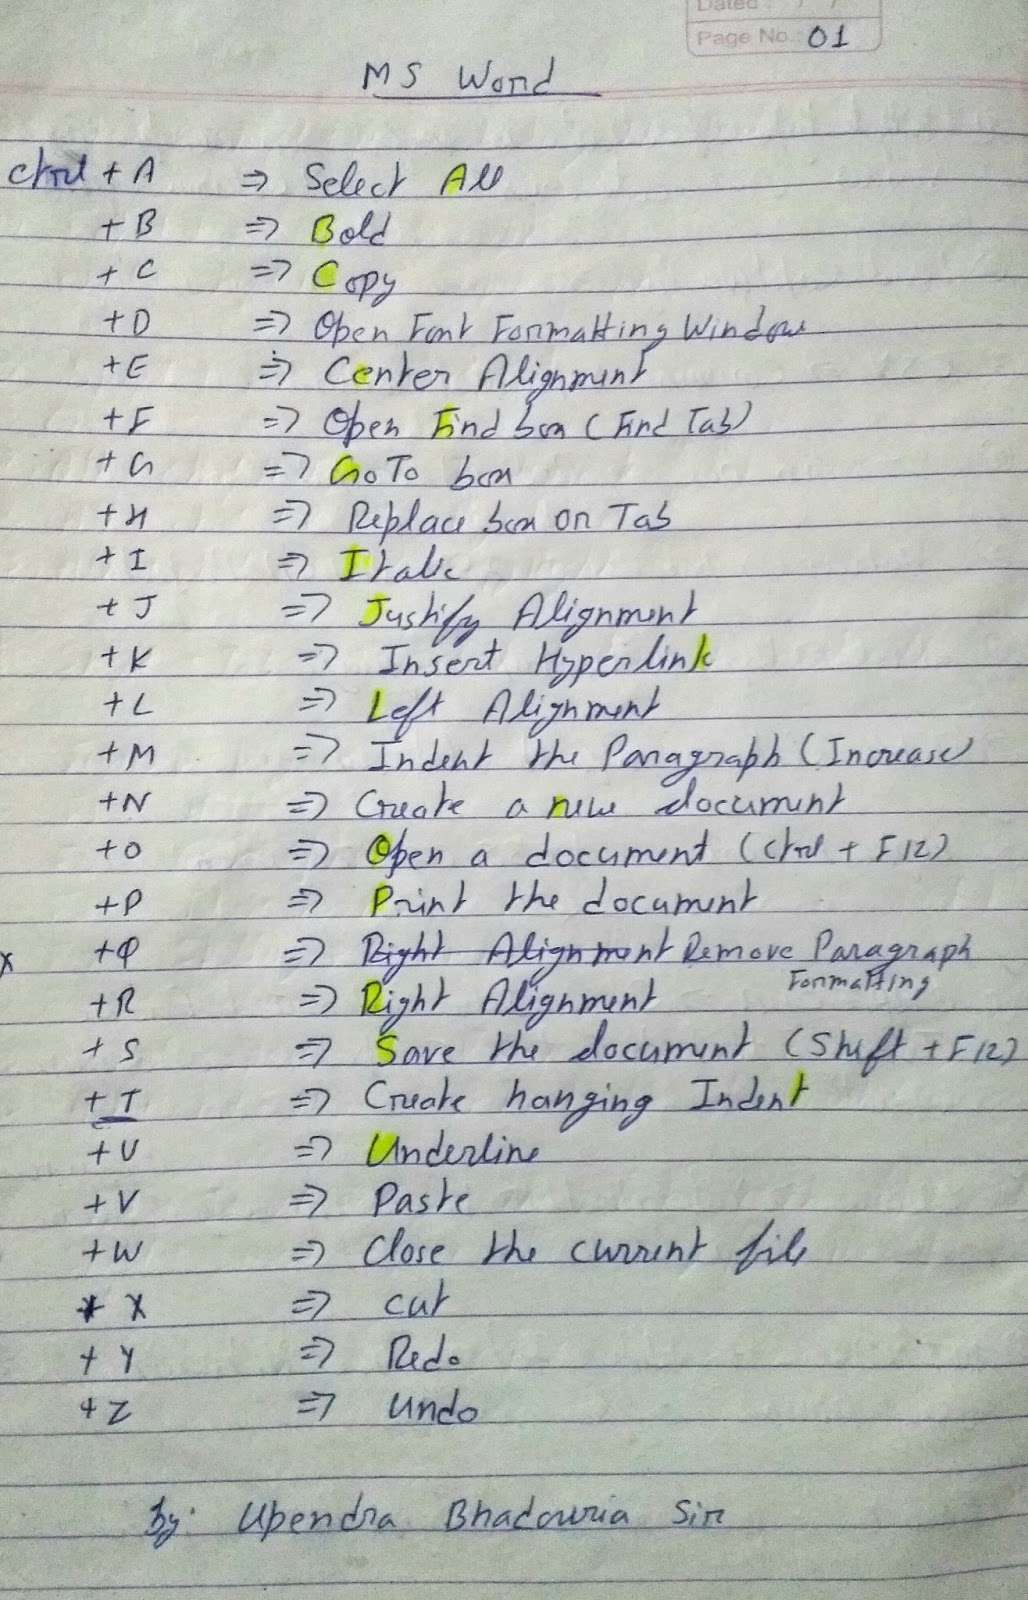 Dated : / /
Page No. : 01
MS Word
Ctrl + A => Select All
+ B => Bold
+ C => Copy
+ D => Open Font Formatting Window
+ E => Center Alignment
+ F => Open Find box (Find Tab)
+ G => Go To box
+ H => Replace box or Tab
+ I => Italic
+ J => Justify Alignment
+ K => Insert Hyperlink
+ L => Left Alignment
+ M => Indent the Paragraph (Increase)
+ N => Create a new document
+ O => Open a document (Ctrl + F12)
+ P => Print the document
x + Q => Right Alignment Remove Paragraph
Formatting
+ R => Right Alignment
+ S => Save the document (Shift + F12)
+ T => Create hanging Indent
+ U => Underline
+ V => Paste
+ W => Close the current file
+ X => cut
+ Y => Redo
+ Z => Undo
by: Upendra Bhadouria Sir